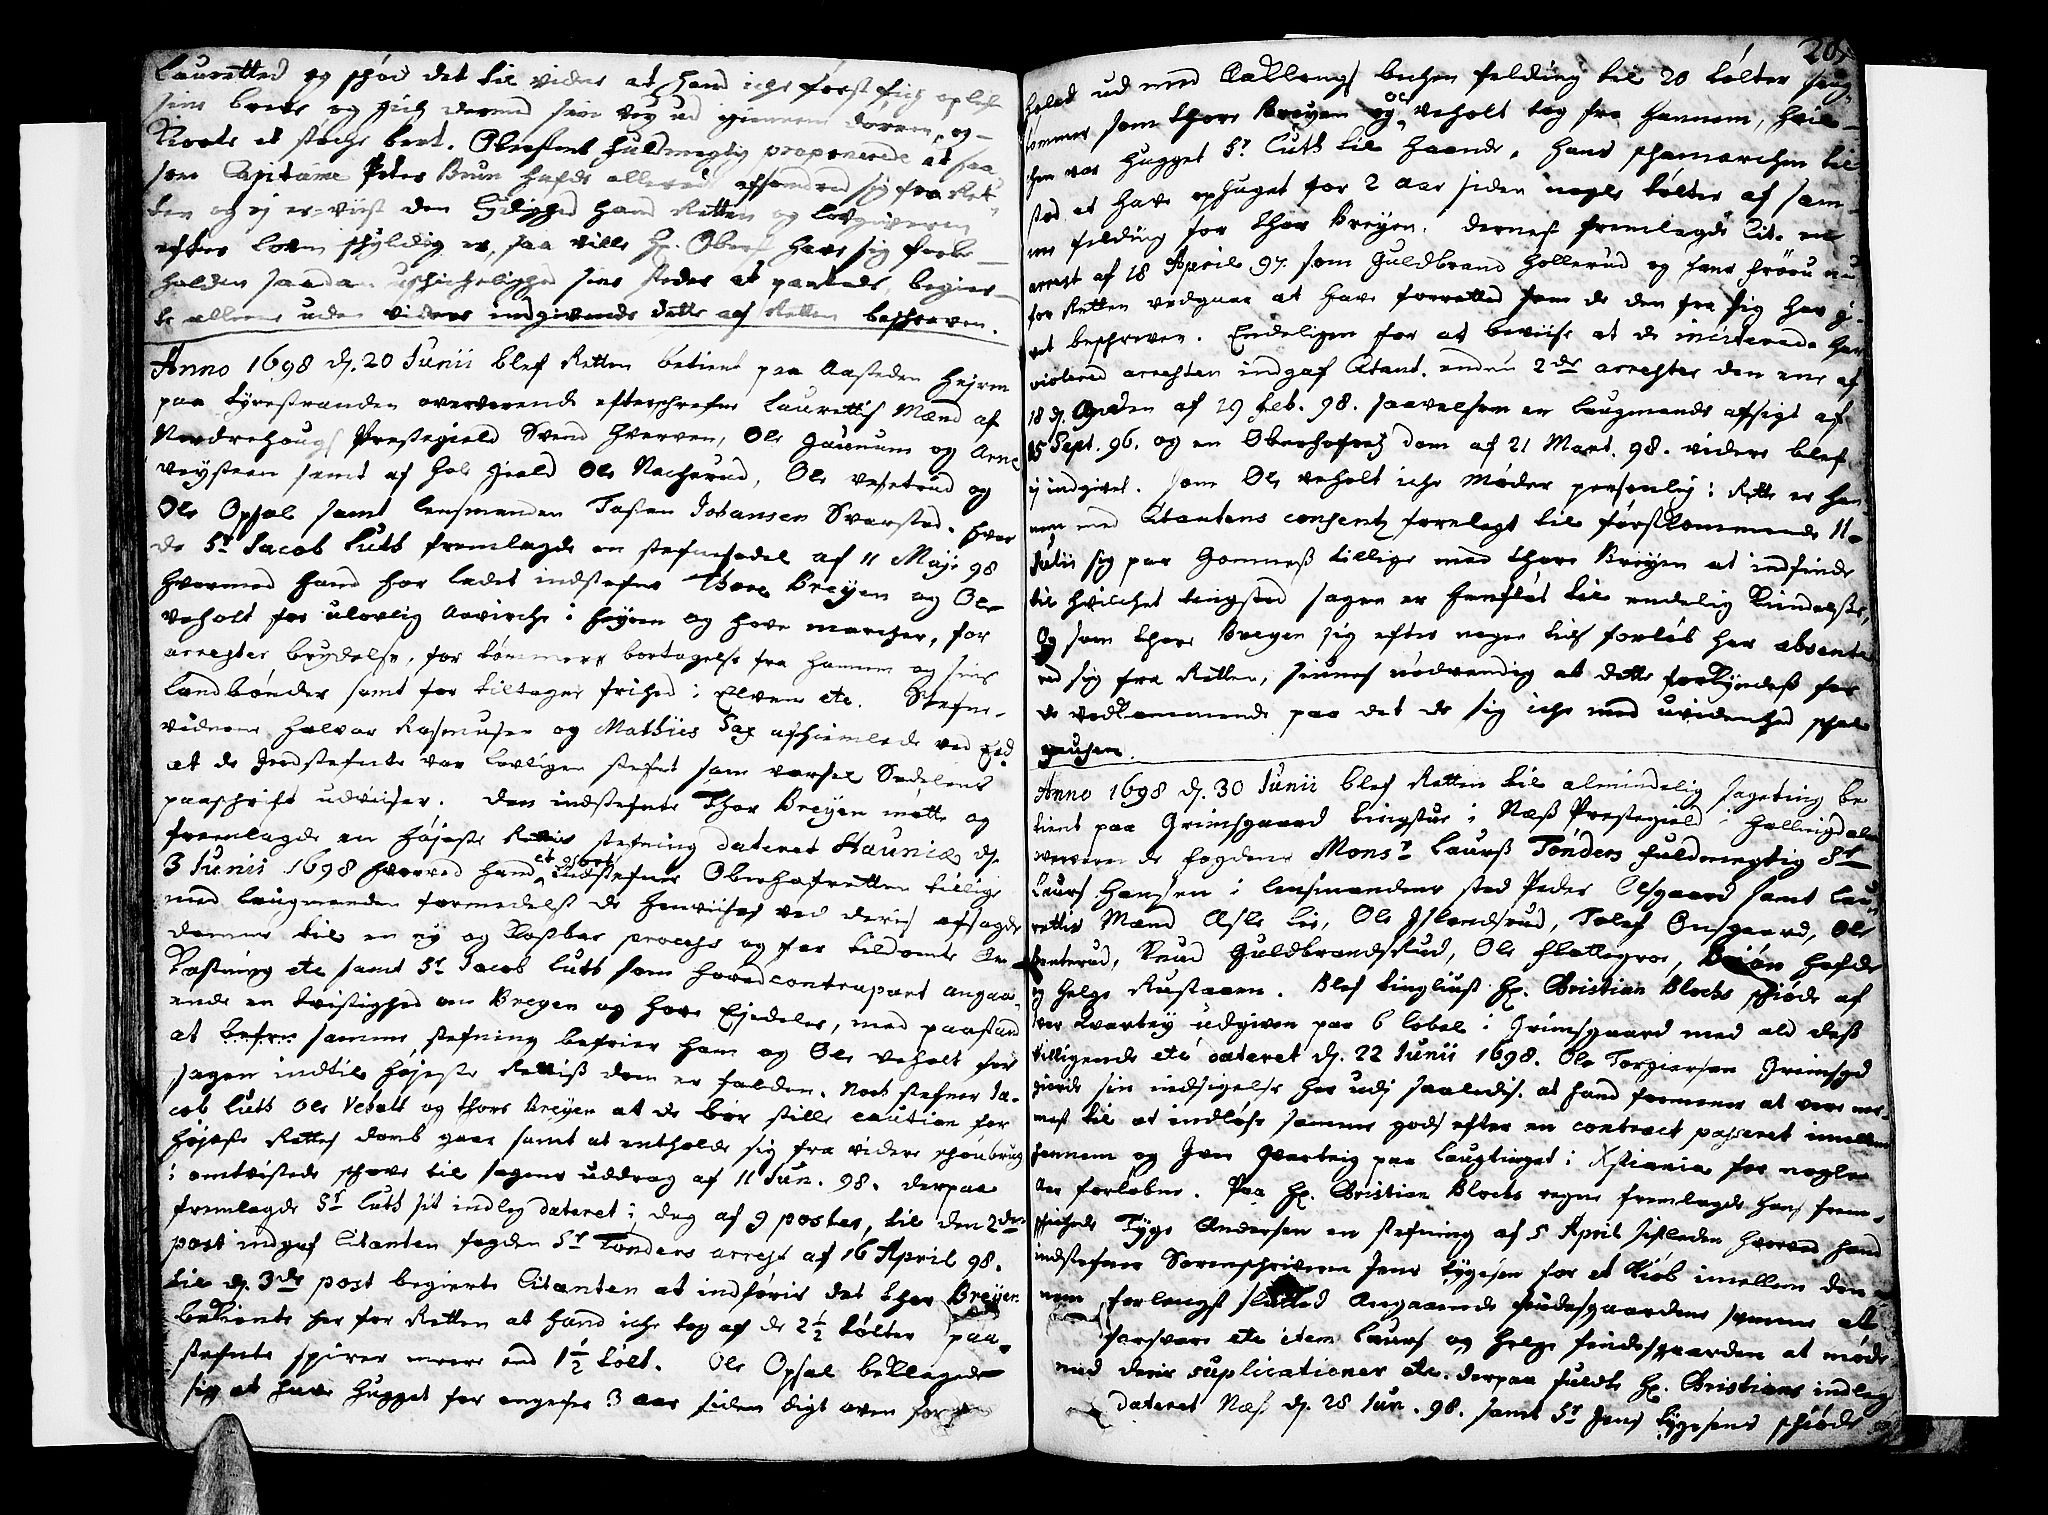 Lauretted og schød det til vidne at hand iche først fich oplest
sine breve og gich dermed sin vey ud igiennem dorren, og
Kaste et støche bort. Oberstens fuldmegtig proponerede at saa
som Capitaine Peter Brun hafde allerede afsondred sig fra Ret
ten og ej er-viist den lydighed hand Retten og lovgiveren
efter loven schyldig er, saa ville Hr. Oberst have sig forbe
holden saadan uschichelighed sine steder at paatale, begier
te allene uden videre indgivende dette af Retten beschreven.
Anno 1698 d. 20 Junii blef Retten betient paa Aasteden Heyren
paa tyrestranden oververende efterschrefne Laurettis Mænd af
Nordrehougs Prestegield Svend Hverven, Ole Gaunum og Arne
Veysteen samt af Hols gield Ole Nacherud, Ole Vesetrud og
Ole Opsal samt lensmanden Tosten Johansen Svarsted. Hvor
da Sr. Jacob Luth fremlagde en stefnesedel af 11 Maji 98
hvormed hand har ladet indstefne Thore Breyen og Ole
Veholt for ulovlig Aavirche i Heyren og hove marcher, for
arrester brydelse, for tømmers bortagelse fra hannem og sine
landbønder samt for tiltagen frihed i Elven etc. Stefne-
vidnerne Halvor Rasmusen og Mathiis Sax afhiemlede ved Eed
at de Indstefnte var lovligen stefnt som varsel Sedelens
paaschrift udviiser. Den indstefnte Thor Breyen møtte og
fremlagde en højeste Rettis stefning dateret Hauniæ d.
3 Junii 1698 hvorved hand indstefner Oberhofretten tillige
med laugmanden formedelst de henviises ved deris afsagde
domme til en ny og Kostbar process og for tildømte Om
Kostning etc samt Sr. Jacob Luth som hovedcontrapart angaa-
ende en tvistighed om Breyen og hove Ejedeler, med paastand
at samme stefning befrier ham og Ole Veholt for
sagen indtil højeste Rettis dom er falden. Noch stefner Ja-
cob Luth Ole Veholt og Thore Breyen at de bør stille caution for
højeste Rettes domb gaar samt at entholde sig fra videre schoubrug
i omtvistede schove til sagens uddrag af 11 Jun. 98. derpaa
fremlagde Sr. Luth sit indleg dateret i dag af 9 poster, til den 2den
post indgaf Citanten fogden Sr. Tønders arrest af 16 April 98.
til d. 3de post begierte Citanten at indføris det Thor Breyen
bekiente her for Retten at hand iche tog af de 2 1/2 tølter paa-
stefnte spirer meere end 1 1/2 tølt. Ole Opsal beklagede
sig at have hugget for ongefer 3 aar siden digt oven for
205
holet ud med Kaklengs bechen felding til 20 tølter saug
tommer som Thore Breyen og Ole Veholt tog fra hannem, hvil-
chen var hugget Sr. Luth til haande. Hans schamarchen til
stod at have ophuget for 2 aar siden nogle tølter af sam-
me felding for Thor Breyen. Dernest fremlagde Cit. en
arrest af 18 April 97. som Guldbrand Hollerud og hans frøru nu
for Retten vedgaar at have forretted som de den fra sig har gi-
vet beschreven. Endeligen for at beviise at de inciterede har
violered arresten indgaf Citant. endnu 2de arrester den ene af
18 d. Anden af 29 feb. 98. saavelsom en laugmands afsigt af
15 Sept. 96. og en Oberhofrets dom af 21 Mart. 98. videre blef
ej indgivet. Som Ole Veholt iche møder personlig i Rette er han-
nem med Citantens consents forelagt til førstkommende 11.
Julii sig paa Gommes tillige med Thore Breyen at indfinde
til hvilchet tingsted sagen er henflet til endelig Kiendelse,
Og som Thore Breyen sig efter nogen tids forløb har absente
red sig fra Retten, siunes nødvendig at dette forkyndes for
de vedkommende paa det de sig iche med uvidenhed schal
Anno 1698 d. 30 Junii blef Retten til almindelig sageting be
tient paa Grimsgaard tingstue i Næs Prestegield i Hallingdalen
werende fogdens Monsr. Laurs Tønders fuldmegtig Sr.
Laurs Hansen i lensmandens sted Peder Olsgaard samt Lau
rettis Mænd Asle Lie, Ole Islandsrud, Tolef Onsgaard, Ole
Benterud, Knud Guldbrandsrud, Ole Flattegroe, Biørn Hofde
og Helge Rustaaen. Blef tingliust Hr. Christian Blochs schiøde af
Iver Qvarteig udgiven paa 6 lobel i Grimsgaard med ald dess
tilligende etc dateret d. 22 Junii 1698. Ole Torgiersøn Grimsgd
giorde sin indsigelse her udj saaledis. at hand formener at vere ner-
mest til at indløse samme gods efter en contract passeret imellem
hannem og Iver Qvarteig paa Laugtinget i Xstiania for nogle
Aar forløbne. Paa Hr. Christian Blochs vegne fremlagde hans frem-
schichede Tyge Andersen en stefning af 5 April sistleden hvorved hand
indstefner Sorenschriveren Jens Tygesen for et Kiøb imellem den
nem forlengst slutted Angaaende findesgaardene somme at
forsvare etc item Laurs og Helge findesgaarden at møde
med deris suplicationer etc. derpaa fuldte Hr. Christians indleg
dateret Næs d. 28 Jun. 98. samt Sr. Jens Tygesens schiøde